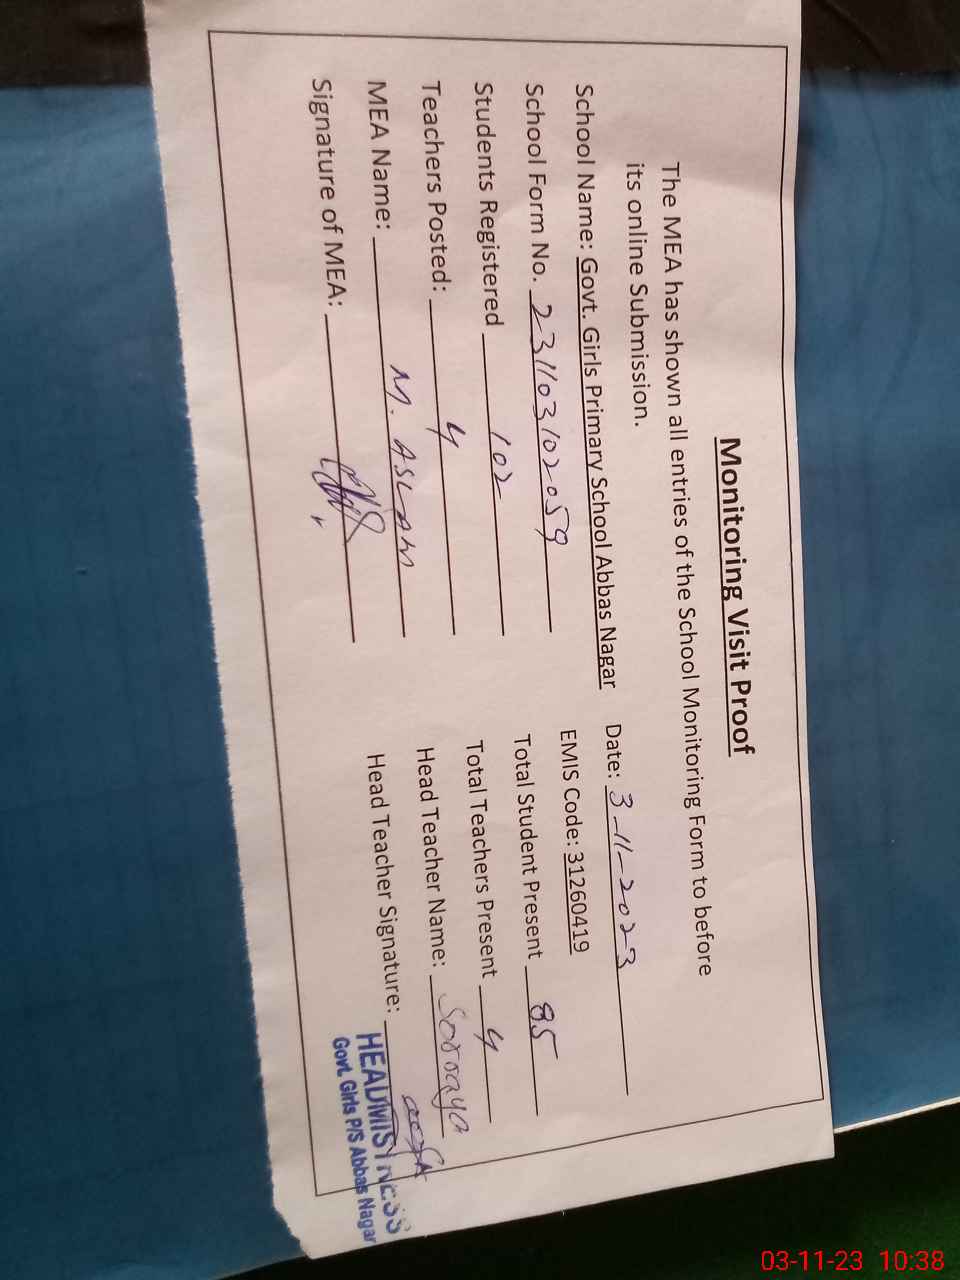 Monitoring Visit Proof
The MEA has shown all entries of the School Monitoring Form to before
its online Submission.
School Name: Govt. Girls Primary School Abbas Nagar
Date: 3-11-2023
School Form No. 231103102059
EMIS Code: 31260419
Students Registered 102
Total Student Present 85
Teachers Posted: 4
Total Teachers Present 4
MEA Name: M. ASLAM
Head Teacher Name:
Signature of MEA:
Head Teacher Signature:
HEADMISTRESS
Govt. Girls P/S Abbas Nagar
03-11-23 10:38